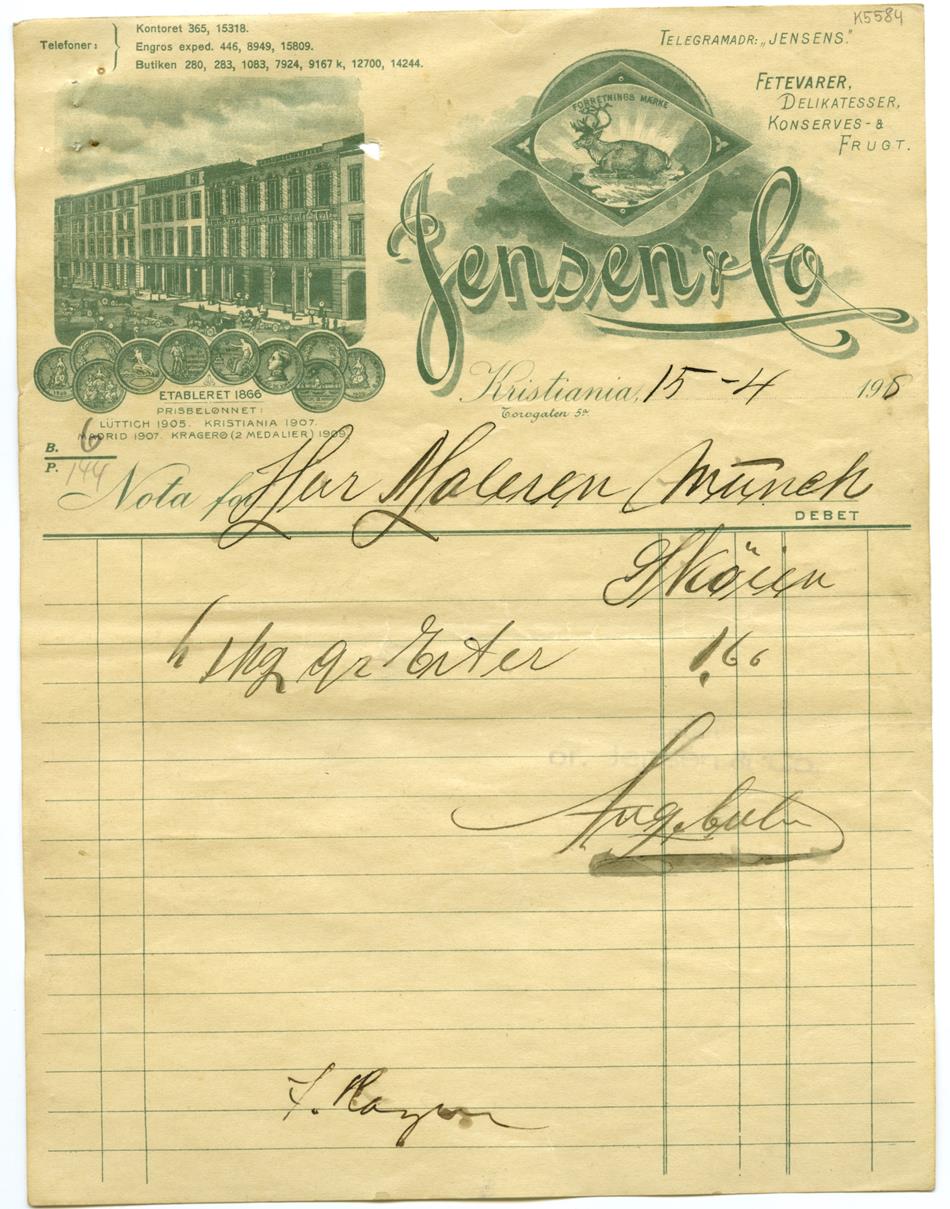 K5584
Telefoner:
Kontoret 365, 15318.
Engros exped. 446, 8949, 15809.
Butiken 280, 283, 1083, 7924, 9167 k, 12700, 14244.
TELEGRAMADR: „JENSENS."
FETEVARER,
DELIKATESSER,
KONSERVES- &
FRUGT.
FORRETNINGS MÆRKE
Jensen & Co
ETABLERET 1866
PRISBELØNNET:
LÜTTICH 1905. KRISTIANIA 1907.
MADRID 1907. KRAGERØ (2 MEDALIER) 1909.
Kristiania, 15-4 1916
Torvgaten 5a.
B. 6
P. 144
Nota for Herr Maleren Munch
DEBET
Skøien
1 kg gr Erter 1.66